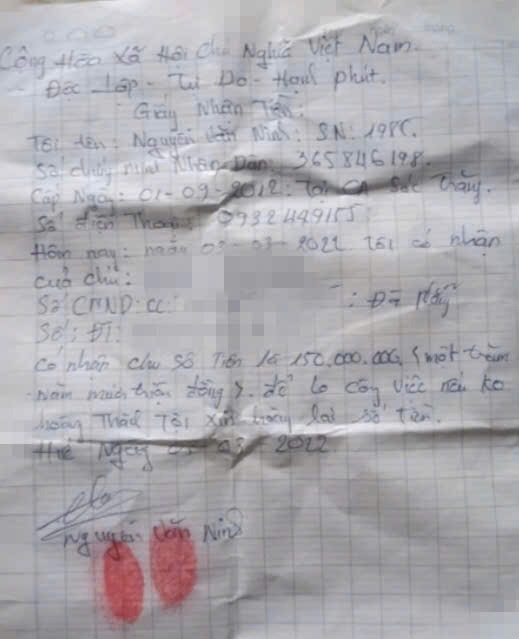 Cộng Hòa Xã Hội Chủ Nghĩa Việt Nam.
Độc Lập - Tự Do - Hạnh phút.
Giấy Nhận Tiền:
Tôi tên: Nguyễn Văn Ninh: SN: 198
Số chứng minh Nhân Dân: 365846198.
Cấp Ngày: 01-09-2012: Tại CA Sóc trăng.
Số điện Thoại: 0932449155
Hôm nay: ngày 03-03-2022 Tôi có nhận
của chú:
Số CMND: CC: : Đà Nẵng
Số: ĐT:
Có nhận chú Số Tiền là 150.000.000, {một trăm
năm mươi triệu đồng}. để lo công việc nếu ko
hoàng Thành Tôi xin hoàng lại số tiền.
Ngày 03-03-2022
Nguyễn Văn Ninh